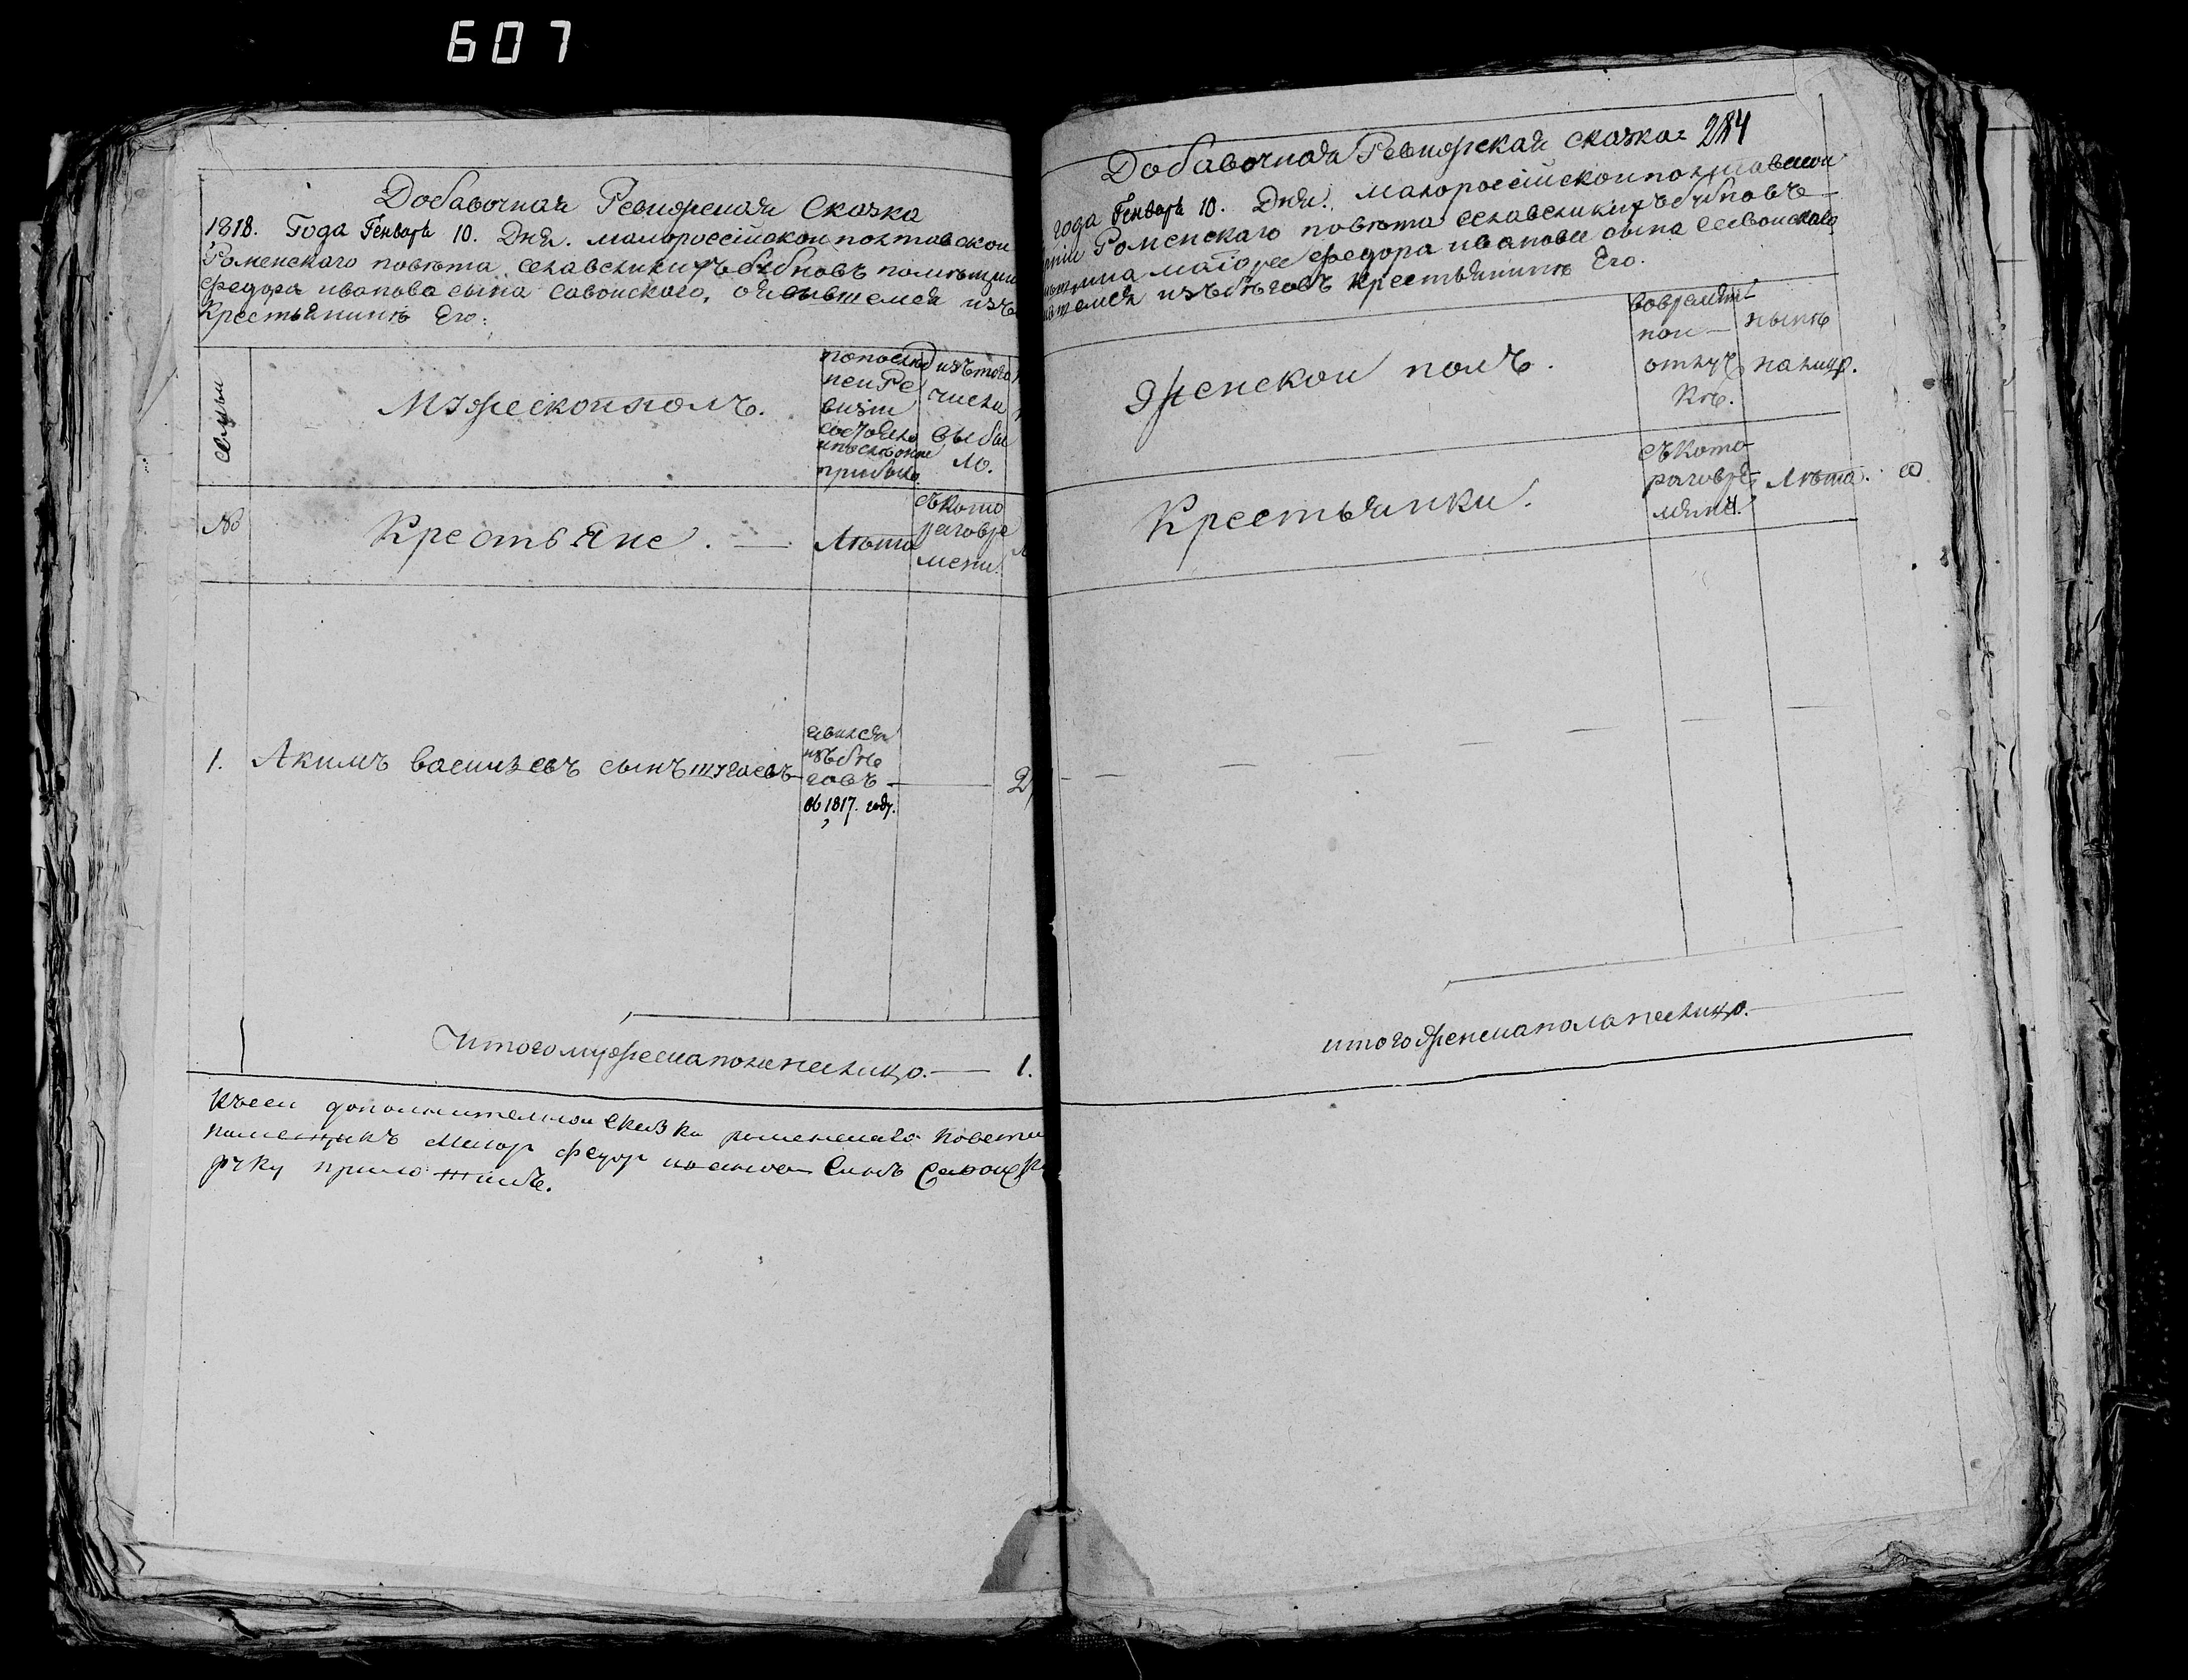 607
Добавочная Ревизская Сказка
1818. Года Генваря 10. Дня. малороссiйской полтавской
Роменскаго повѣта села великихъ бубновъ помѣщик
федора иванова сына савойского, оявившемся изъ
Крестьянинѣ Его:
семьи
Мужеской полъ.
попослед
ней Ре
визiи
состояло
ипослѣ оной
прибыло.
изътого
числа
выбы
ло.
№
Крестьяне. —
Лѣта
съкото
раговре
мени.
1. Акимъ васильевъ сынъ шугаевъ
явился
изъбѣ
говъ
въ 1817. году.
2
Итого мужеска пола налицо. — 1.
Късей дополнителной сказки роменскаго повета
помещикъ маиор федор иванов Синъ Савойск
руку приложилъ.
Добавочная Ревизская сказка 284
года Генваря 10. Дня. малороссiйской полтавской
рнiи Роменскаго повѣта села великихъ бубновъ —
маiора федора иванова сына савойскаго
шемся изъ бѣговъ крестьянинѣ Его.
Женской полъ.
вовремян
ной
отлуч
кѣ.
нынѣ
налицо.
Крестьянки.
съкото
раговре
мяни.
Лѣта.
итого женска пола налицо. —